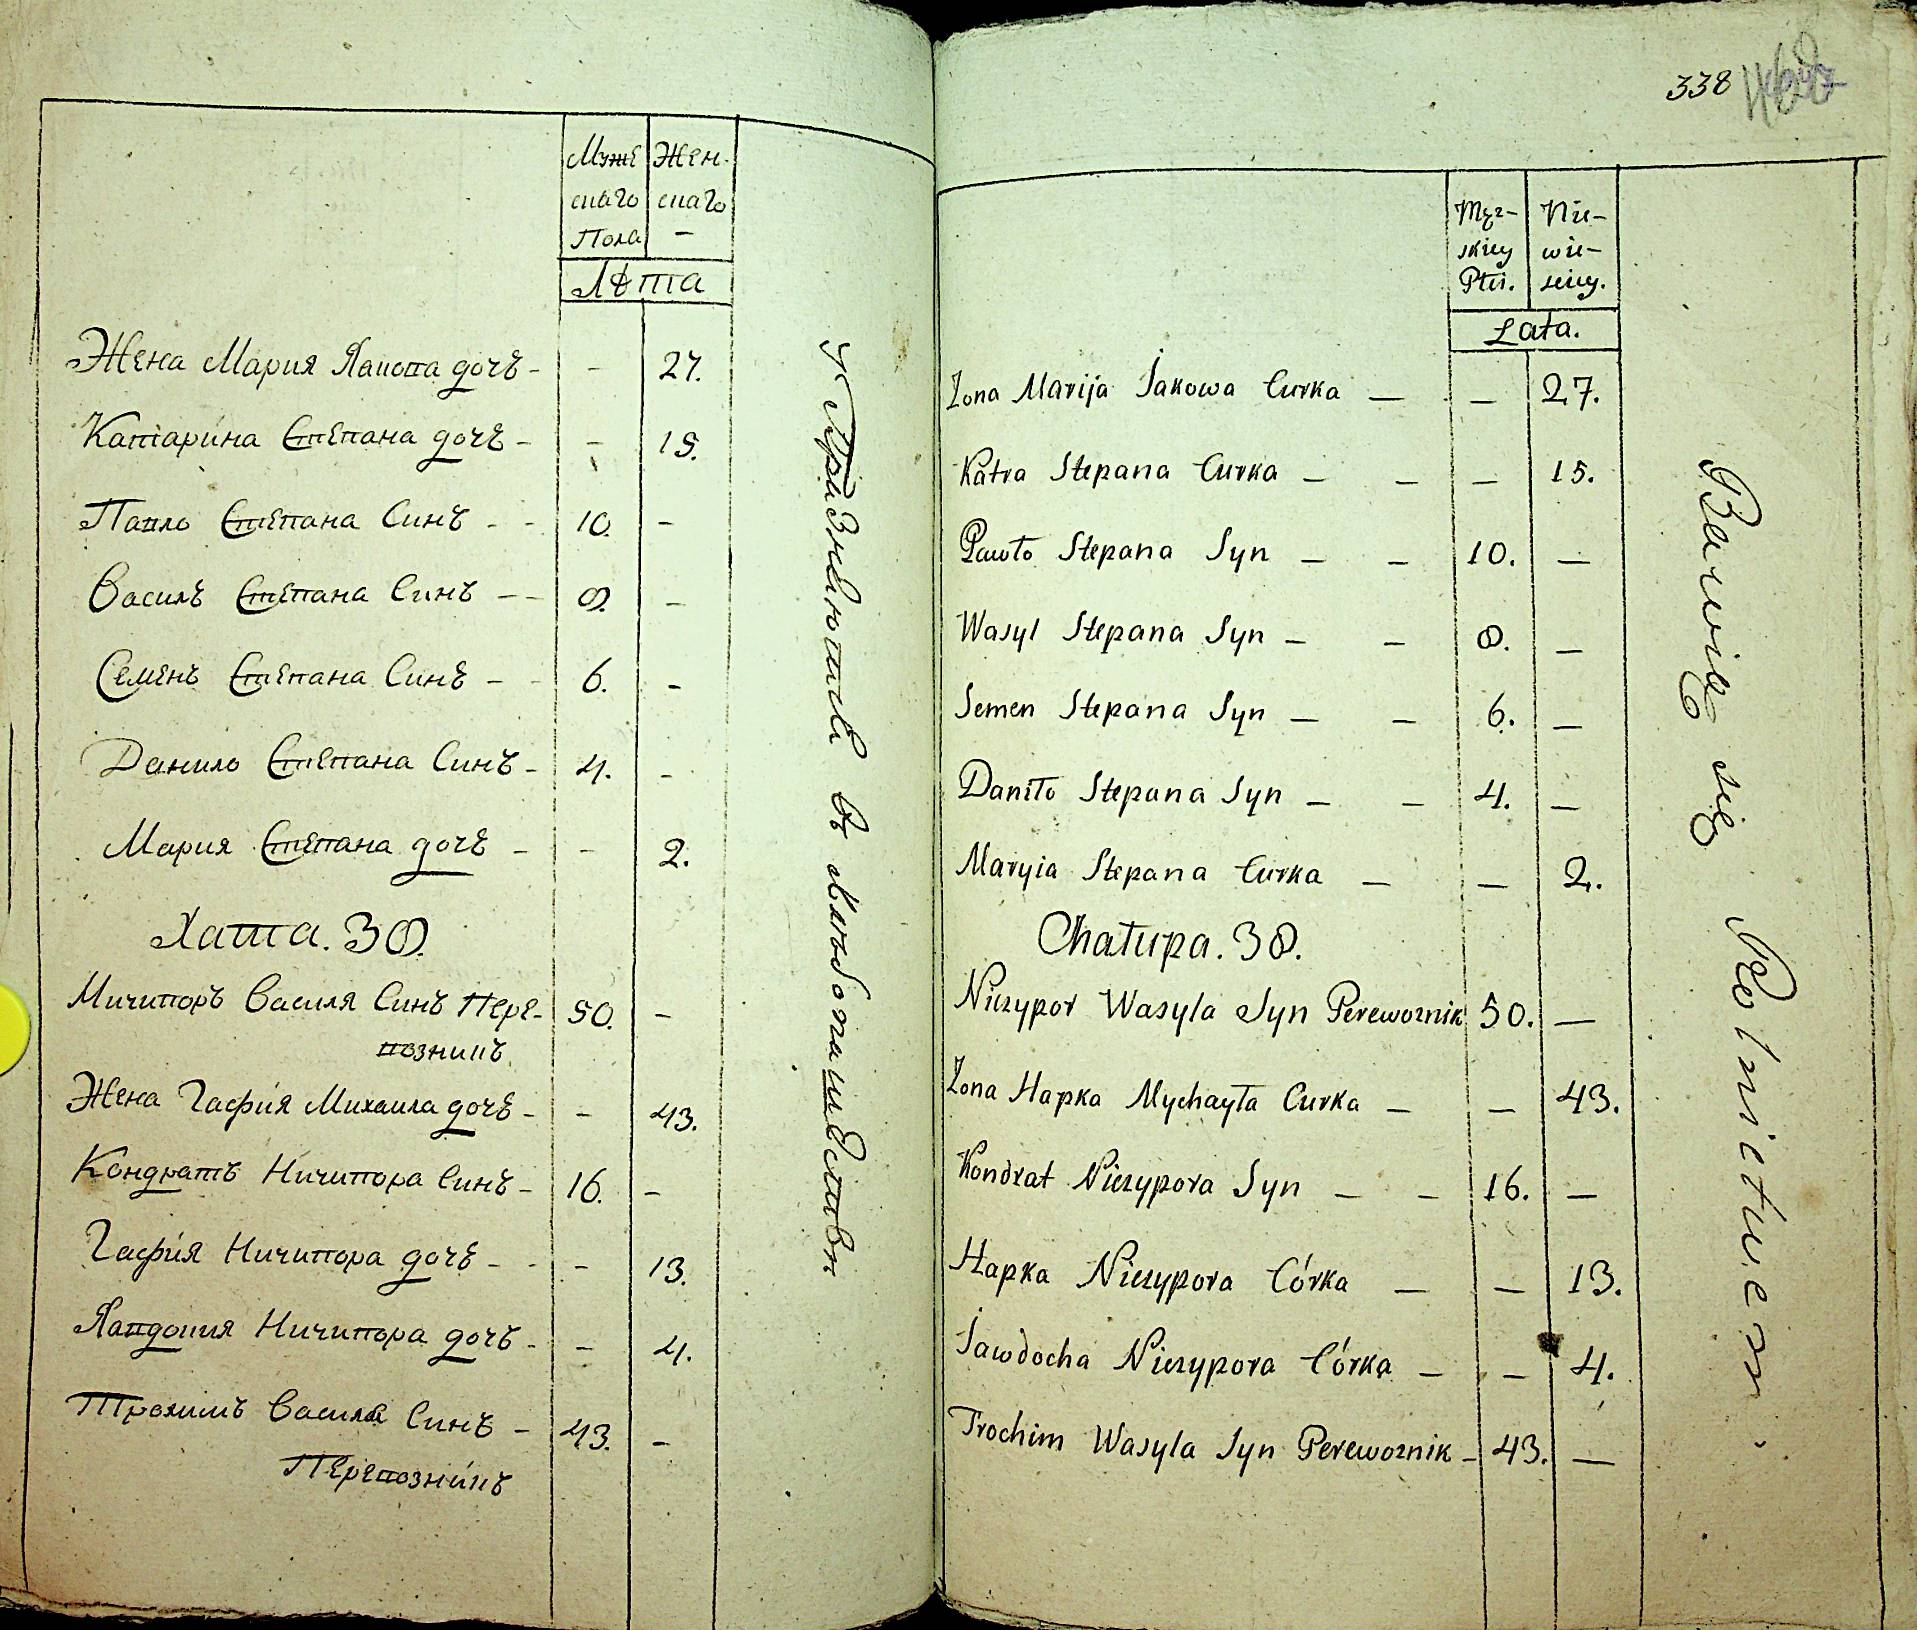 Мужескаго Пола
Женскаго —
Лѣта
Жена Мария Якова дочь - - 27.
Катарина Степана дочь - - 15.
Павло Степана Синъ - - 10. -
Василь Степана Синъ - - 8. -
Семенъ Степана Синъ - - 6. -
Данило Степана Синъ - 4. -
Мария Степана дочь - - 2.
Хата. 38.
Ничипоръ Василя Синъ Пере- 50. -
возникъ
Жена Гафия Михаила дочь - - 43.
Кондратъ Ничипора Синъ - 16. -
Гафия Ничипора дочь - - - 13.
Явдокия Ничипора дочь - - 4.
Трохимъ Василя Синъ - 43. -
Перевозникъ
Упражняются въ хлебопашестве
338
Męz-
skiey
Płci.
Nie-
wie-
sciey.
Lata.
Zona Marija Jakowa Curka — — 27.
Katra Stepana Curka — — — 15.
Pawło Stepana Syn — — 10. —
Wasyl Stepana Syn — — 8. —
Semen Stepana Syn — — 6. —
Daniło Stepana Syn — — 4. —
Maryia Stepana Curka — — 2.
Chałupa. 38.
Niczypor Wasyla Syn Perewoznik 50. —
Zona Hapka Mychayła Curka — — 43.
Kondrat Niczypora Syn — — 16. —
Hapka Niczypora Córka — — 13.
Jawdocha Niczypora Córka — — 4.
Trochim Wasyla Syn Perewoznik - 43. —
Bawią się Rolnictwem.